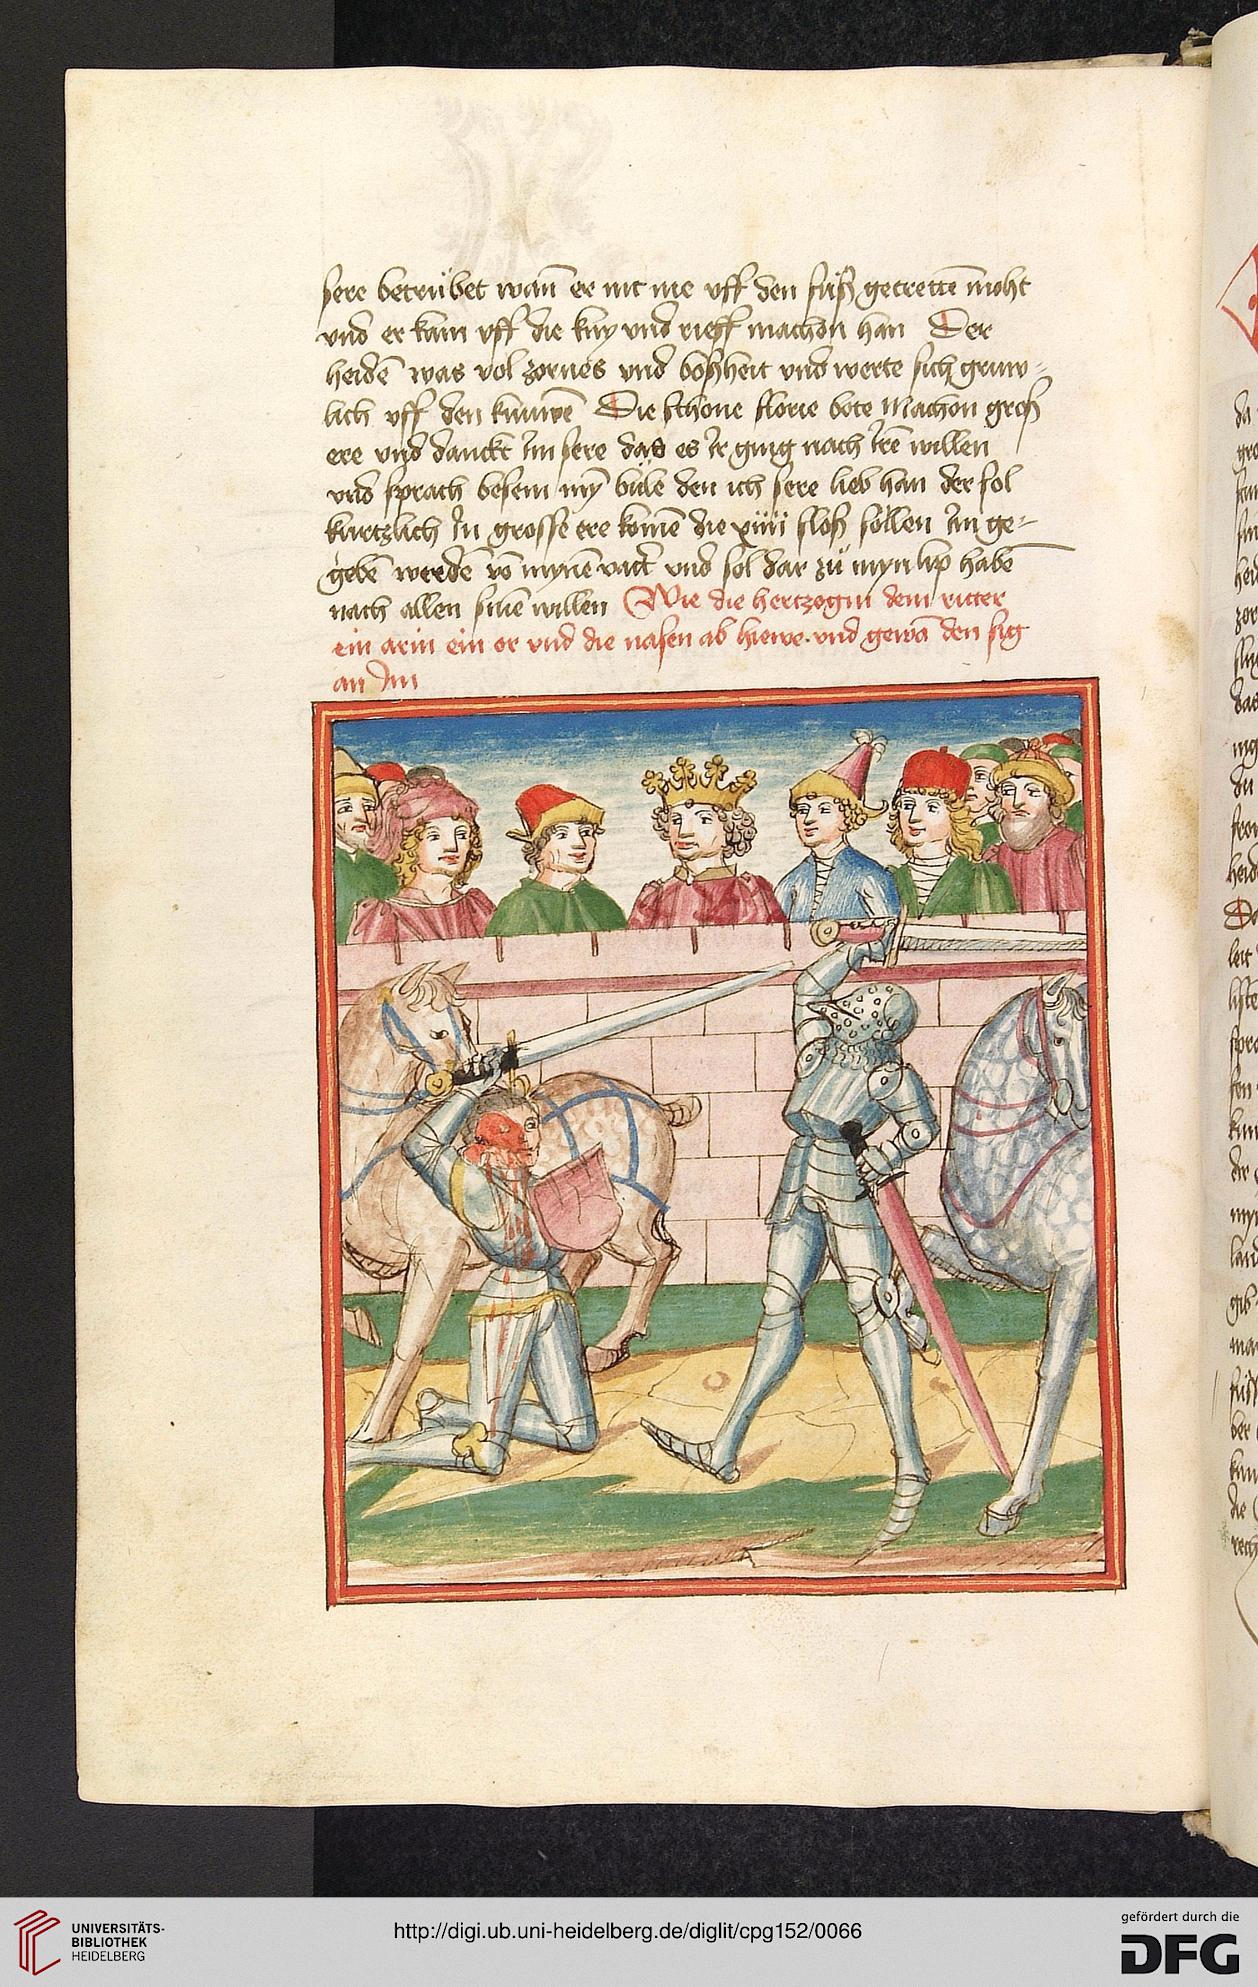 sere betrübet wañ er nit me vff den fuß getretten moht
vnd er kam vff die kny vnd rieff machon han Der
heidē was vol zornes vnd boßheit vnd werte sich gruw-
lich vff den knuwē Die schone florie bote Machon groß
ere vnd danckt Im sere das es Ir ging nach Irē willen
vnd sprach besem mȳ bule den ich sere lieb han der sol
kurtzlich In grosse ere komē die xiiii sloß sollen Im ge-
gebē werdē vō mynē vatt vnd sol dar zu myn lip habē
nach allen sinē willen Wie die hertzogin dem ritter
ein arm ein or vnd die nasen ab hiewe. vnd gewā den sig
an Im
UNIVERSITÄTS-
BIBLIOTHEK
HEIDELBERG
http://digi.ub.uni-heidelberg.de/diglit/cpg152/0066
gefördert durch die
DFG